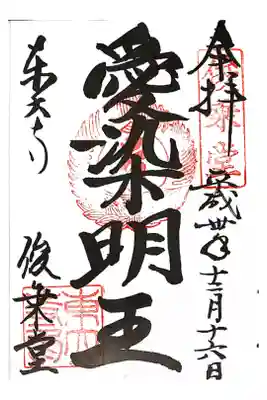 奉拝 平成卅年十二月十六日
愛染明王
東大寺
俊乗堂